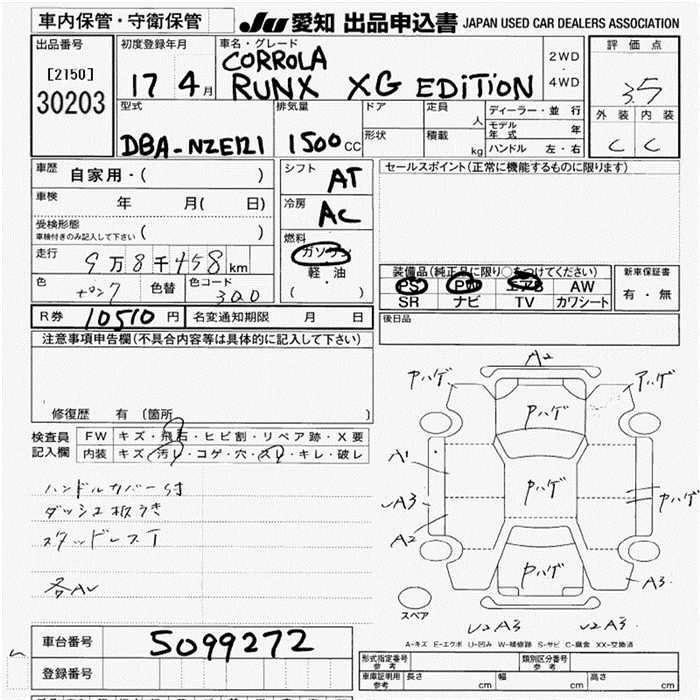 車内保管・守衛保管
JU 愛知 出品申込書 JAPAN USED CAR DEALERS ASSOCIATION
出品番号
[2150]
30203
初度登録年月
17 4月
車名・グレード
CORROLA
RUNX XG EDITION
2WD
・
4WD
評価点
3.5
外装 内装
C C
型式
DBA-NZE121
排気量
1500cc
ドア
形状
定員 人
積載 kg
ディーラー・並行
モデル年式 年
ハンドル 左・右
車歴
自家用・( )
車検
年 月( 日)
受検形態
車検付きのみ記入して下さい ( )
走行
9万8千458km
色
色替
色コード
3Q0
シフト
AT
冷房
AC
燃料
ガソリン
・
軽油
( )
セールスポイント(正常に機能するものに限ります)
装備品(純正品に限り○をつけてください)
PS PW エアB AW
SR ナビ TV カワシート
新車保証書
有・無
R券 10510円 名変通知期限 月 日
後日品
注意事項申告欄(不具合内容等は具体的に記入して下さい)
修復歴 有 (箇所 )
検査員
記入欄
FW キズ・飛石・ヒビ割・リペア跡・X要
内装 キズ・汚レ・コゲ・穴・スレ・キレ・破レ
ハンドルカバー付
ダッシュ板うき
スタッドレスT
各AU
A2
Pハゲ
Pハゲ
Pハゲ
A1
Pハゲ
Pハゲ
A3
A2
Pハゲ
A3
スペア
U2 A3
U2 A3
A-キズ E-エクボ U-凹み W-補修跡 S-サビ C-腐食 XX-交換済
車台番号 5099272
登録番号
形式指定番号
参考
類別区分番号
参考
車庫証明用
参考
長さ cm
幅 cm
高さ cm